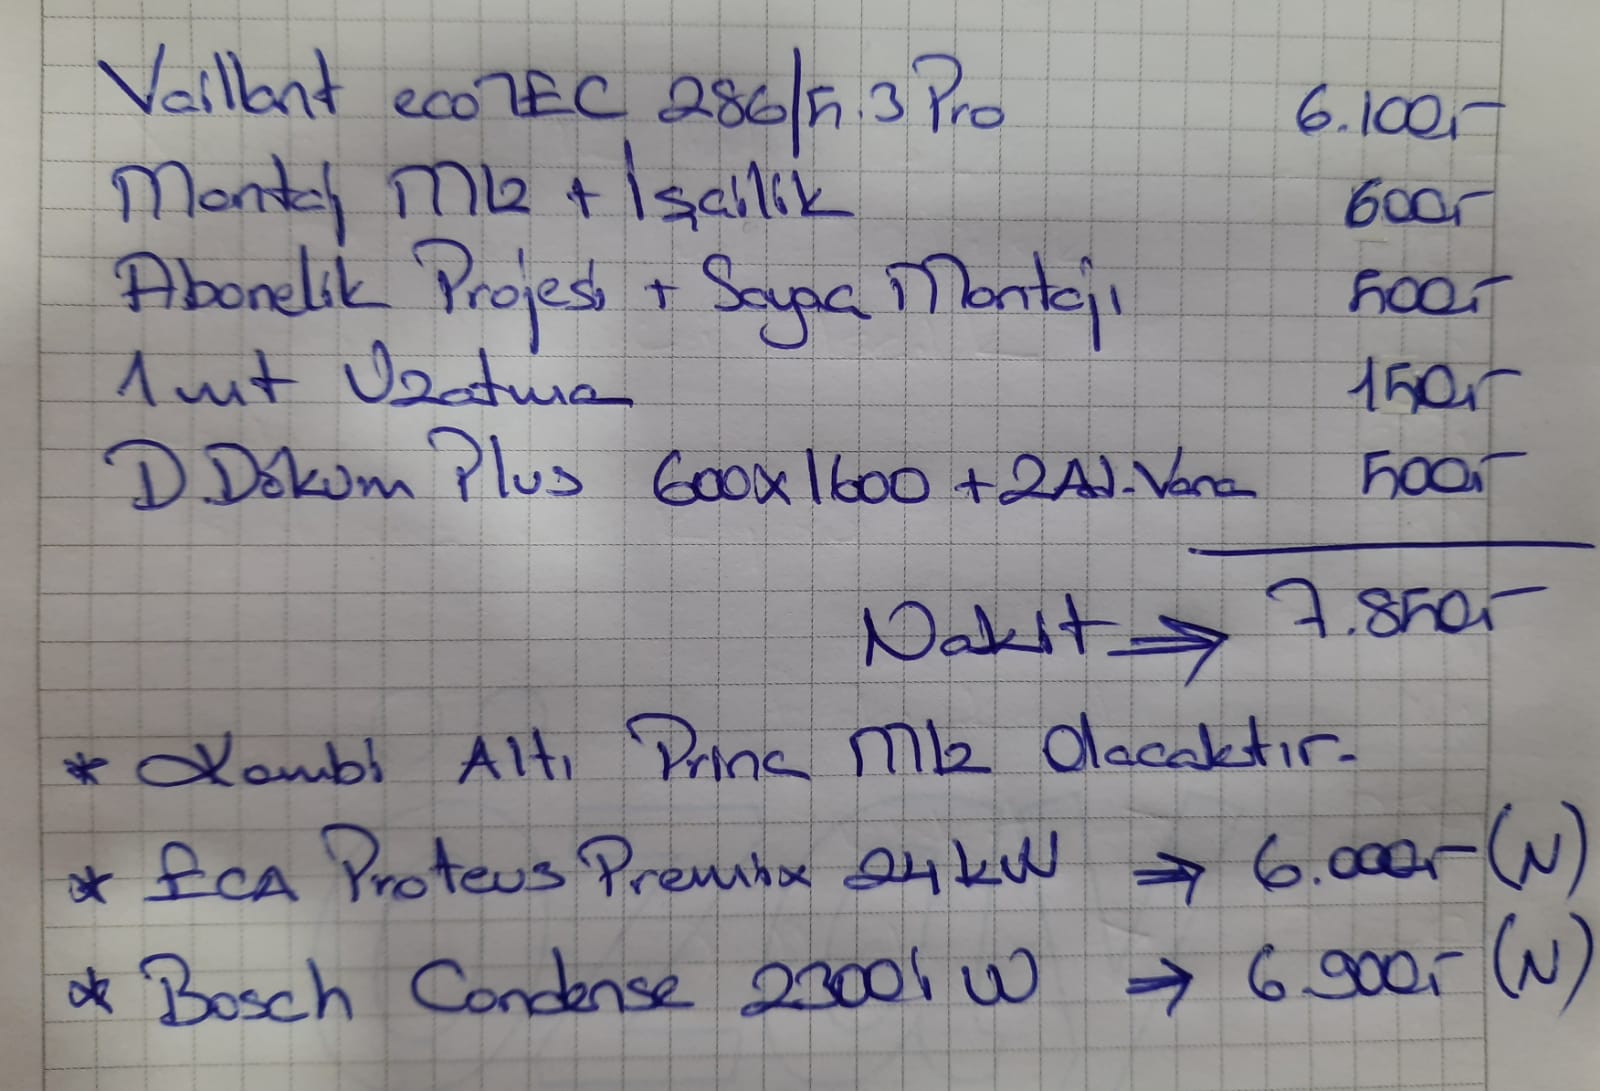 Vaillant ecoTEC 286/5.3 Pro 6.100,-
Montaj Mlz + İşçilik 600,-
Abonelik Projesi + Sayaç Montajı 500,-
1 mt Uzatma 150,-
D.Döküm Plus 600x1600 + 2 Ad. Vana 500,-
Nakit → 7.850,-
* Kombi Altı Prinç Mlz Olacaktır.
* ECA Proteus Premix 24 kW → 6.000,- (N)
* Bosch Condense 2300i W → 6.900,- (N)